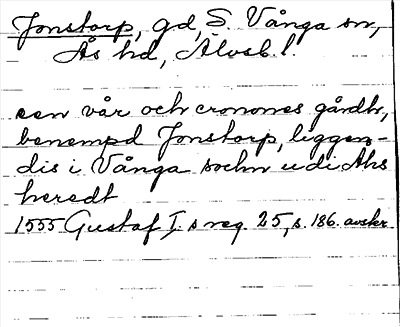 Jonstorp, gd, S. Vånga sn,
Ås hd, Älvsb. l.
een vår och cronones gårdh,
benempd Jonstorp, liggen-
dis i Vånga sochn udi Ahs
heredt
1555 Gustaf I:s reg. 25, s. 186. avskr.